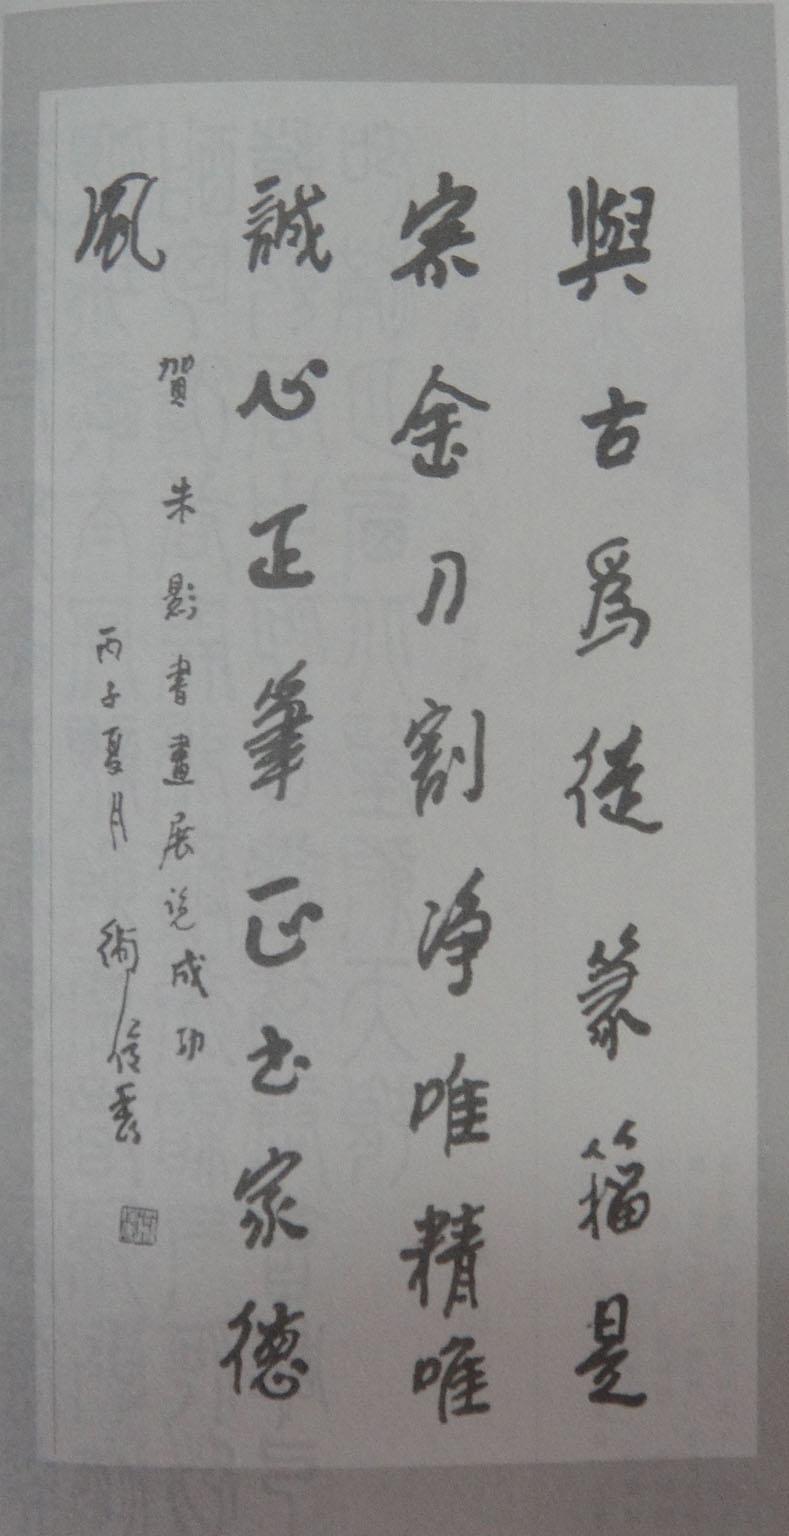 與古爲徒篆籀是
宗金刀割净唯精唯
誠心正筆正書家德
風
賀朱影書畫展览成功
丙子夏月